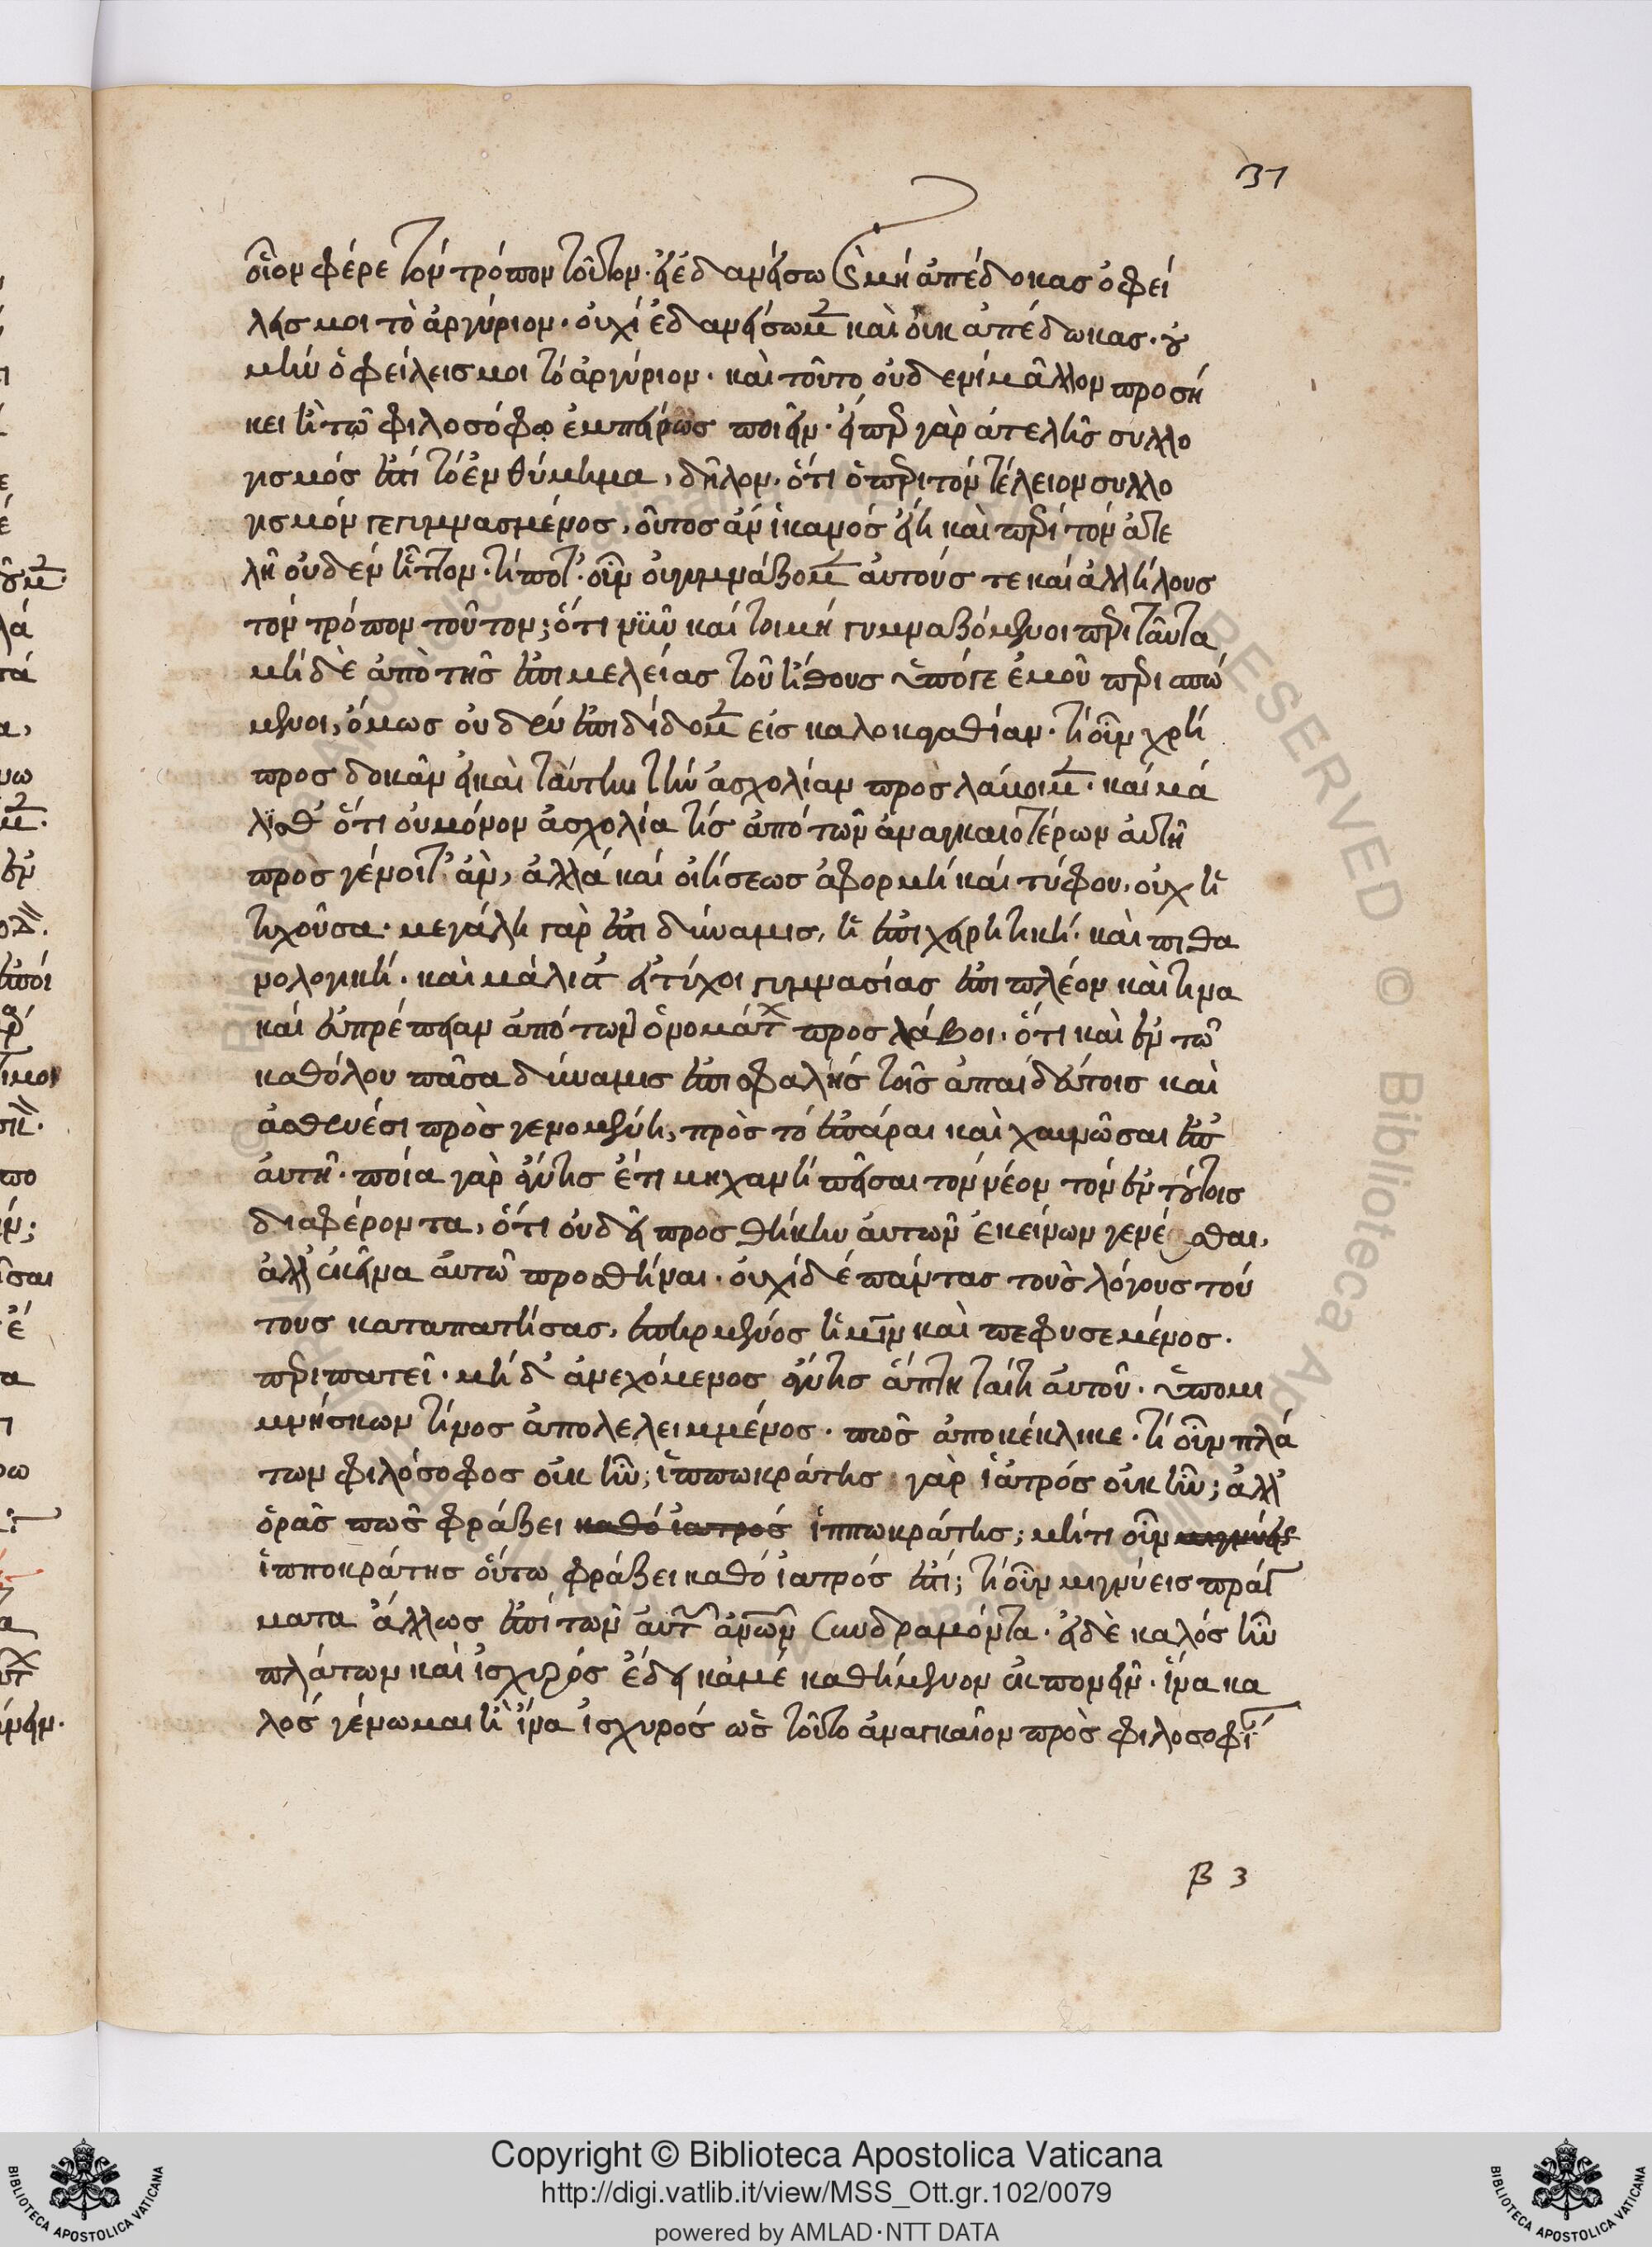 31
οἷον φέρε τὸν τρόπον τοῦτον· εἰ ἐδανείσω καὶ μὴ ἀπέδοκας ὀφεί
λεις μοι τὸ ἀργύριον· οὐχὶ ἐδανείσω μὲν καὶ οὐκ ἀπέδωκας· οὐ
μὴν ὀφείλεις μοι τὸ ἀργύριον· καὶ τοῦτο οὐδενὶ μᾶλλον προσή
κει ἢ τῷ φιλοσόφῳ ἐμπείρως ποιεῖν· εἴπερ γὰρ ἀτελὴς συλλο
γισμός ἐστι τὸ ἐνθύμημα, δῆλον· ὅτι ὁ περὶ τὸν τέλειον συλλο
γισμὸν γεγυμνασμένος, οὗτος ἂν ἱκανὸς εἴη καὶ περὶ τὸν ἀτε
λῆ οὐδὲν ἧττον· τί ποτ' οὖν οὐ γυμνάζομεν αὑτούς τε καὶ ἀλλήλους
τὸν τρόπον τοῦτον; ὅτι νῦν καίτοι μὴ γυμναζόμενοι περὶ ταῦτα
μηδὲ ἀπὸ τῆς ἐπιμελείας τοῦ ἤθους ὑπό γε ἐμοῦ περισπώ
μενοι, ὅμως οὐδὲν ἐπιδίδομεν εἰς καλοκαγαθίαν· τί οὖν χρὴ
προσδοκᾶν εἰ καὶ ταύτην τὴν ἀσχολίαν προσλάβοιμεν· καὶ μά
λισθ' ὅτι οὐ μόνον ἀσχολία τις ἀπὸ τῶν ἀναγκαιοτέρων αὐτὴ
προσγένοιτ' ἂν, ἀλλὰ καὶ οἰήσεως ἀφορμὴ καὶ τύφου, οὐχ ἡ
τυχοῦσα· μεγάλη γὰρ ἐστι δύναμις, ἡ ἐπιχειρητικὴ· καὶ πιθα
νολογικὴ· καὶ μάλιστ' εἰ τύχοι γυμνασίας ἐπιπλέον καί τινα
καὶ εὐπρέπειαν ἀπὸ τῶν ὀνομάτων προσλάβοι· ὅτι καὶ ἐν τῷ
καθόλου πᾶσα δύναμις ἐπισφαλὴς τοῖς ἀπαιδεύτοις καὶ
ἀσθενέσι προσγενομένη, πρὸς τὸ ἐπᾶραι καὶ χαυνῶσαι ἐπ'
αὐτῇ· ποία γὰρ ἄν τις ἔτι μηχανὴ πεῖσαι τὸν νέον τὸν ἐν τούτοις
διαφέροντα, ὅτι οὐ δεῖ προσθήκην αὐτῶν ἐκείνων γενέσθαι,
ἀλλ' ἐκεῖνα αὐτῷ προσθῆναι· οὐχὶ δὲ πάντας τοὺς λόγους τού
τους καταπατήσας, ἐπηρμένος ἡμῖν καὶ πεφυσεμένος·
περιπατεῖ· μηδ' ἀνεχόμενος ἄν τις ἅπτηται αὐτοῦ· ὑπομι
μνήσκων τίνος ἀπολελειμμένος· ποῦ ἀποκέκλικε· τί οὖν πλά
των φιλόσοφος οὐκ ἦν; ἱπποκράτης γὰρ ἰατρὸς οὐκ ἦν; ἀλλ'
ὁρᾷς πῶς φράζει καθὸ ἰατρός ἱπποκράτης; μήτι οὖν μιγνύεις
ἱπποκράτης οὕτω φράζει καθὸ ἰατρός ἐστι; τί οὖν μιγνύεις πράγ
ματα ἄλλως ἐπὶ τῶν αὐτῶν ἀνθρώπων συνδραμόντα· εἰ δὲ καλὸς ἦν
πλάτων καὶ ἰσχυρός ἔδει κἀμὲ καθήμενον ἐκπονεῖν· ἵνα κα
λὸς γένωμαι ἢ ἵνα ἰσχυρός ὡς τοῦτο ἀναγκαῖον πρὸς φιλοσοφί
β 3
Copyright © Biblioteca Apostolica Vaticana
http://digi.vatlib.it/view/MSS_Ott.gr.102/0079
powered by AMLAD·NTT DATA